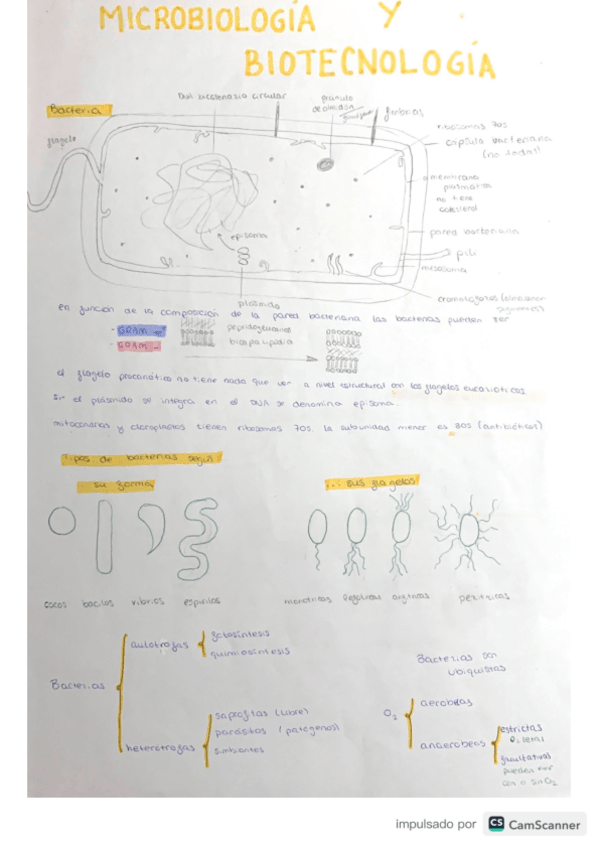 MICROBIOLOGÍA Y
BIOTECNOLOGÍA
Bacteria
DNA bicatenario circular
gránulo
de almidón
fimbrias
flagelo
ribosomas 70s
capsula bacteriana
(no todas)
membrana
plasmática
no tiene
colesterol
pared bacteriana
pili
mesosoma
episoma
plásmido
en función de la composición de la pared bacteriana las bacterias pueden ser
- GRAM +
- GRAM -
peptidoglucano
bicapa lipídica
el flagelo procariótico no tiene nada que ver a nivel estructural con los flagelos eucarióticos
si el plásmido se integra en el DNA se denomina episoma.
mitocondrias y cloroplastos tienen ribosomas 70s. la subunidad menor es 30s (antibióticos)
Tipos de bacterias según
su forma
... sus flagelos
cocos bacilos vibrios espirilos
perítricas
Bacterias
autótrofas
fotosíntesis
quimiosíntesis
heterótrofas
saprofitas (libre)
parásitas (patógenos)
simbiontes
Bacterias son
ubiquistas
O₂
aerobeas
anaerobeas
estrictas
O₂ letal
facultativas
pueden vivir
con o sin O₂
impulsado por CS CamScanner